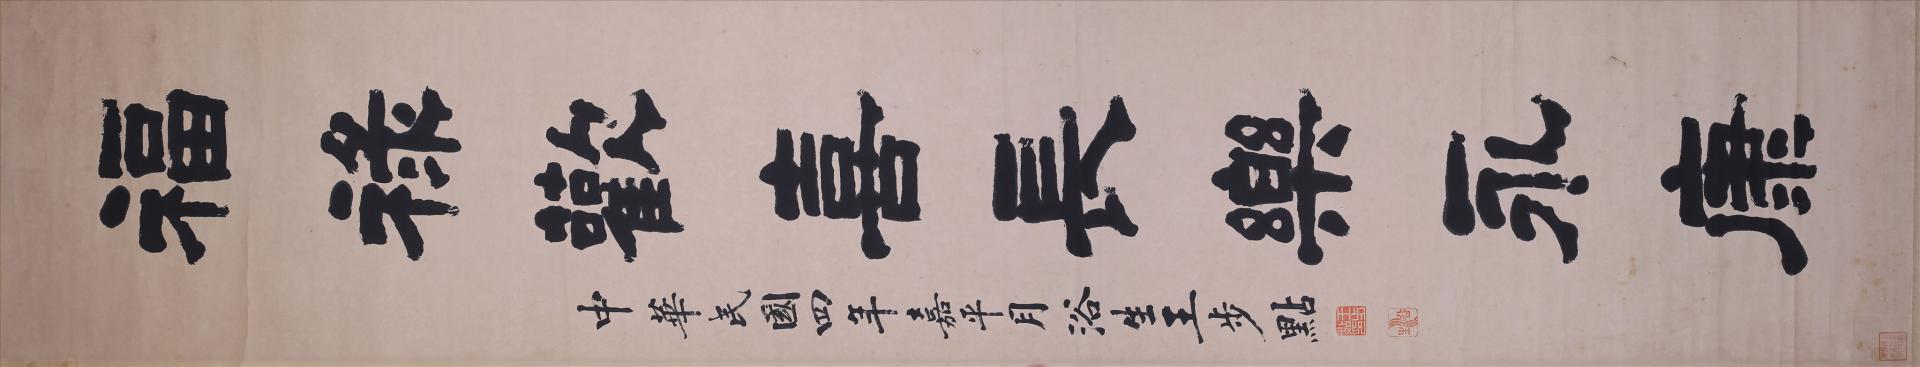 福祿歡喜長樂永康
中華民國四年嘉平月浴生王步點